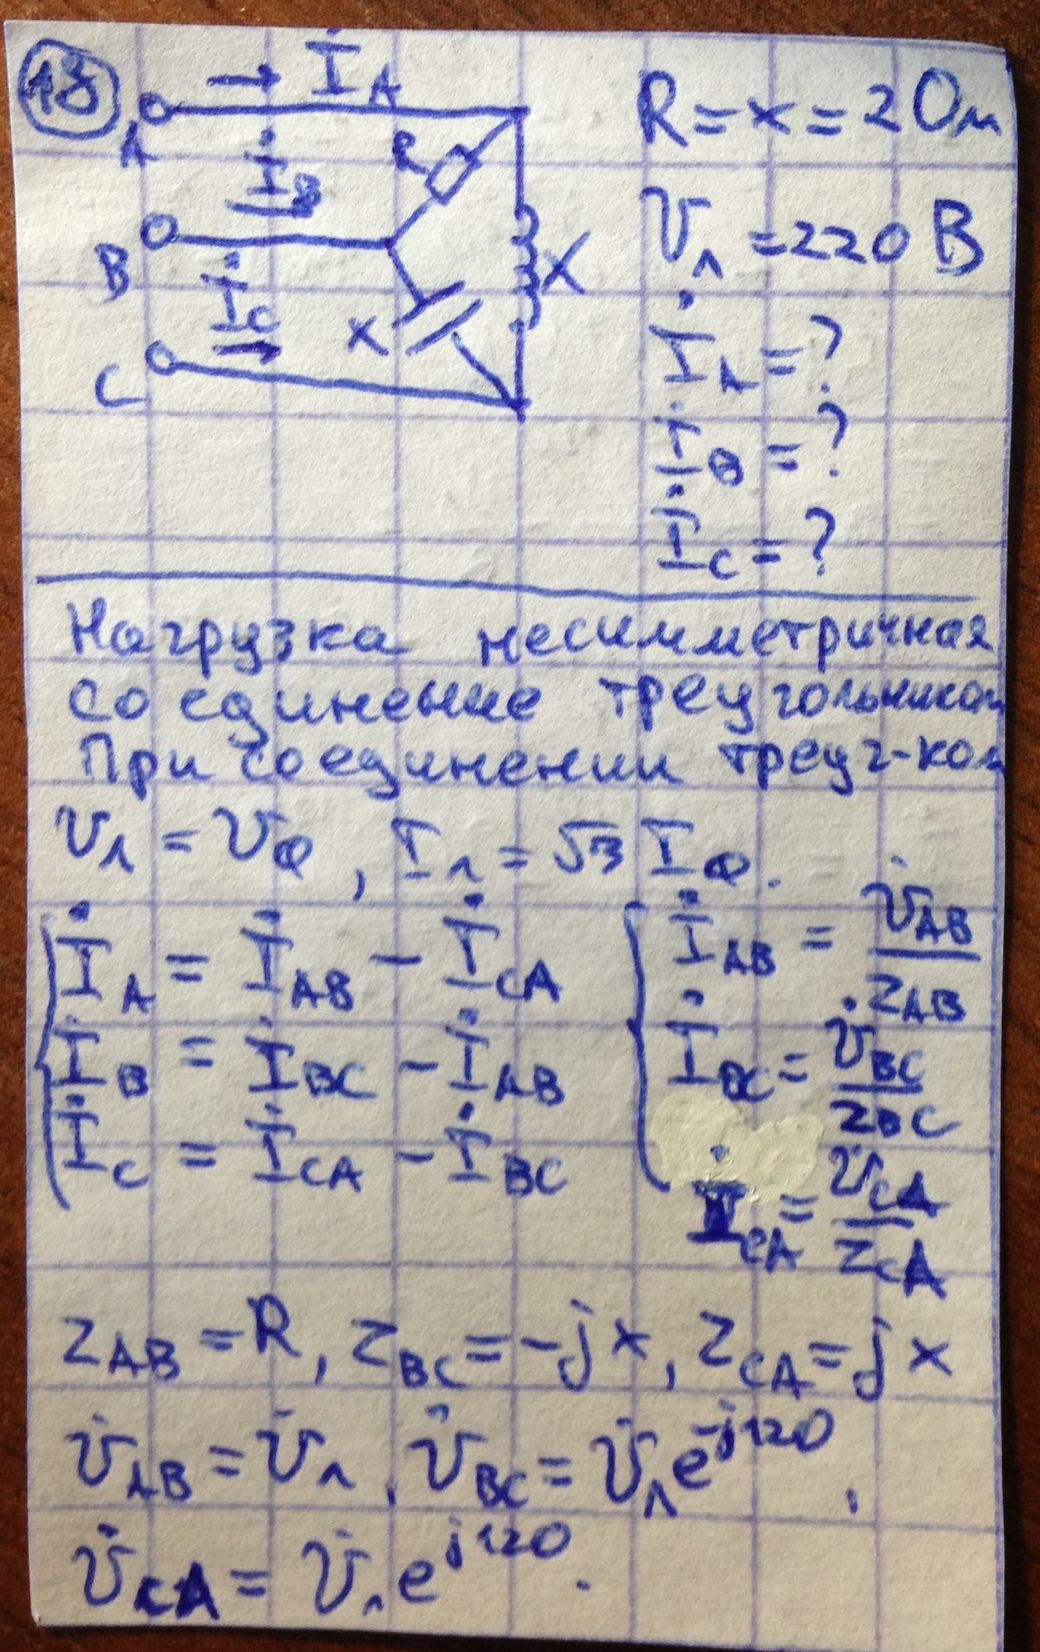 18
İ_A
A
R
İ_B
B
X
İ_C
X
C
R = x = 2 Ом
U_л = 220 В
İ_A = ?
İ_B = ?
İ_C = ?
Нагрузка несимметричная
соединение треугольником
При соединении треуг-ком
U_л = U_Ф, I_л = √3 I_Ф.
İ_A = İ_AB - İ_CA
İ_B = İ_BC - İ_AB
İ_C = İ_CA - İ_BC
İ_AB = U̇_AB / Z_AB
İ_BC = U̇_BC / Z_BC
İ_CA = U̇_CA / Z_CA
Z_AB = R, Z_BC = -jx, Z_CA = jx
U̇_AB = U̇_л, U̇_BC = U̇_л e^-j120,
U̇_CA = U̇_л e^j120.